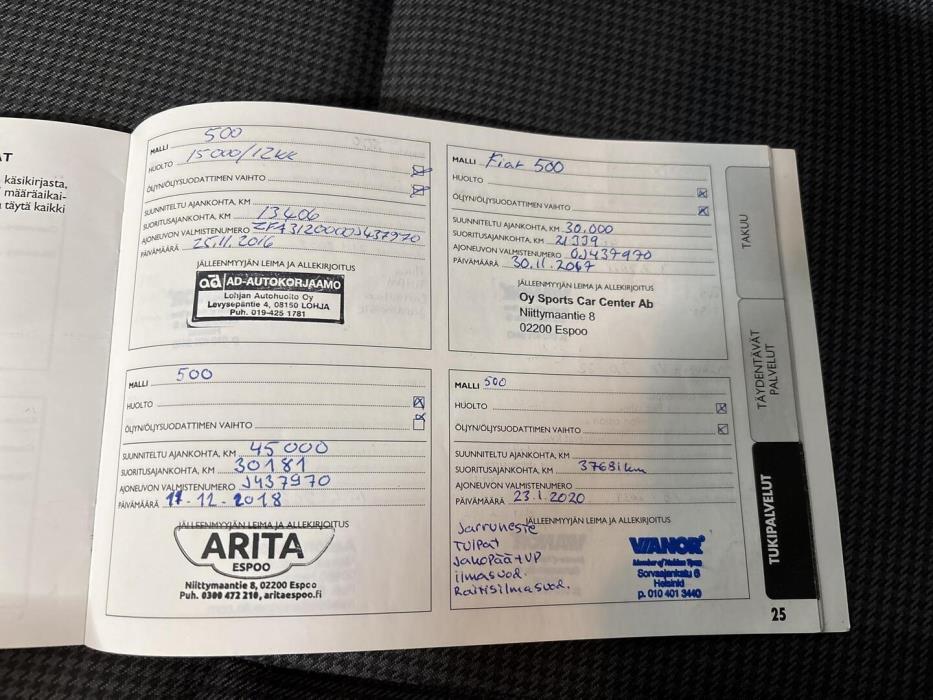 AT
käsikirjasta,
määräaikai-
täytä kaikki
MALLI 500
HUOLTO 15000/12kk
ÖLJYN/ÖLJYSUODATTIMEN VAIHTO
SUUNNITELTU AJANKOHTA, KM
SUORITUSAJANKOHTA, KM 13406
AJONEUVON VALMISTENUMERO ZFA3120000J437970
PÄIVÄMÄÄRÄ 25.11.2016
JÄLLEENMYYJÄN LEIMA JA ALLEKIRJOITUS
ad AD-AUTOKORJAAMO
Lohjan Autohuolto Oy
Levysepäntie 4, 08150 LOHJA
Puh. 019-425 1781
MALLI Fiat 500
HUOLTO
ÖLJYN/ÖLJYSUODATTIMEN VAIHTO
SUUNNITELTU AJANKOHTA, KM 30.000
SUORITUSAJANKOHTA, KM
AJONEUVON VALMISTENUMERO 0J437970
PÄIVÄMÄÄRÄ
JÄLLEENMYYJÄN LEIMA JA ALLEKIRJOITUS
Oy Sports Car Center Ab
Niittymaantie 8
02200 Espoo
MALLI 500
HUOLTO
ÖLJYN/ÖLJYSUODATTIMEN VAIHTO
SUUNNITELTU AJANKOHTA, KM 45000
SUORITUSAJANKOHTA, KM 30181
AJONEUVON VALMISTENUMERO J437970
PÄIVÄMÄÄRÄ 17-12-2018
JÄLLEENMYYJÄN LEIMA JA ALLEKIRJOITUS
ARITA
ESPOO
Niittymaantie 8, 02200 Espoo
Puh. 0300 472 210, aritaespoo.fi
MALLI 500
HUOLTO
ÖLJYN/ÖLJYSUODATTIMEN VAIHTO
SUUNNITELTU AJANKOHTA, KM
SUORITUSAJANKOHTA, KM 37681km
AJONEUVON VALMISTENUMERO
PÄIVÄMÄÄRÄ 23.1.2020
JÄLLEENMYYJÄN LEIMA JA ALLEKIRJOITUS
Jarruneste
Tulpat
Jakopää+VP
ilmasuod.
Raitisilmasuod.
VIANOR
Member of Nokian Tyres
Sorvaajankatu 6
Helsinki
p. 010 401 3440
TAKUU
TÄYDENTÄVÄT
PALVELUT
TUKIPALVELUT
25